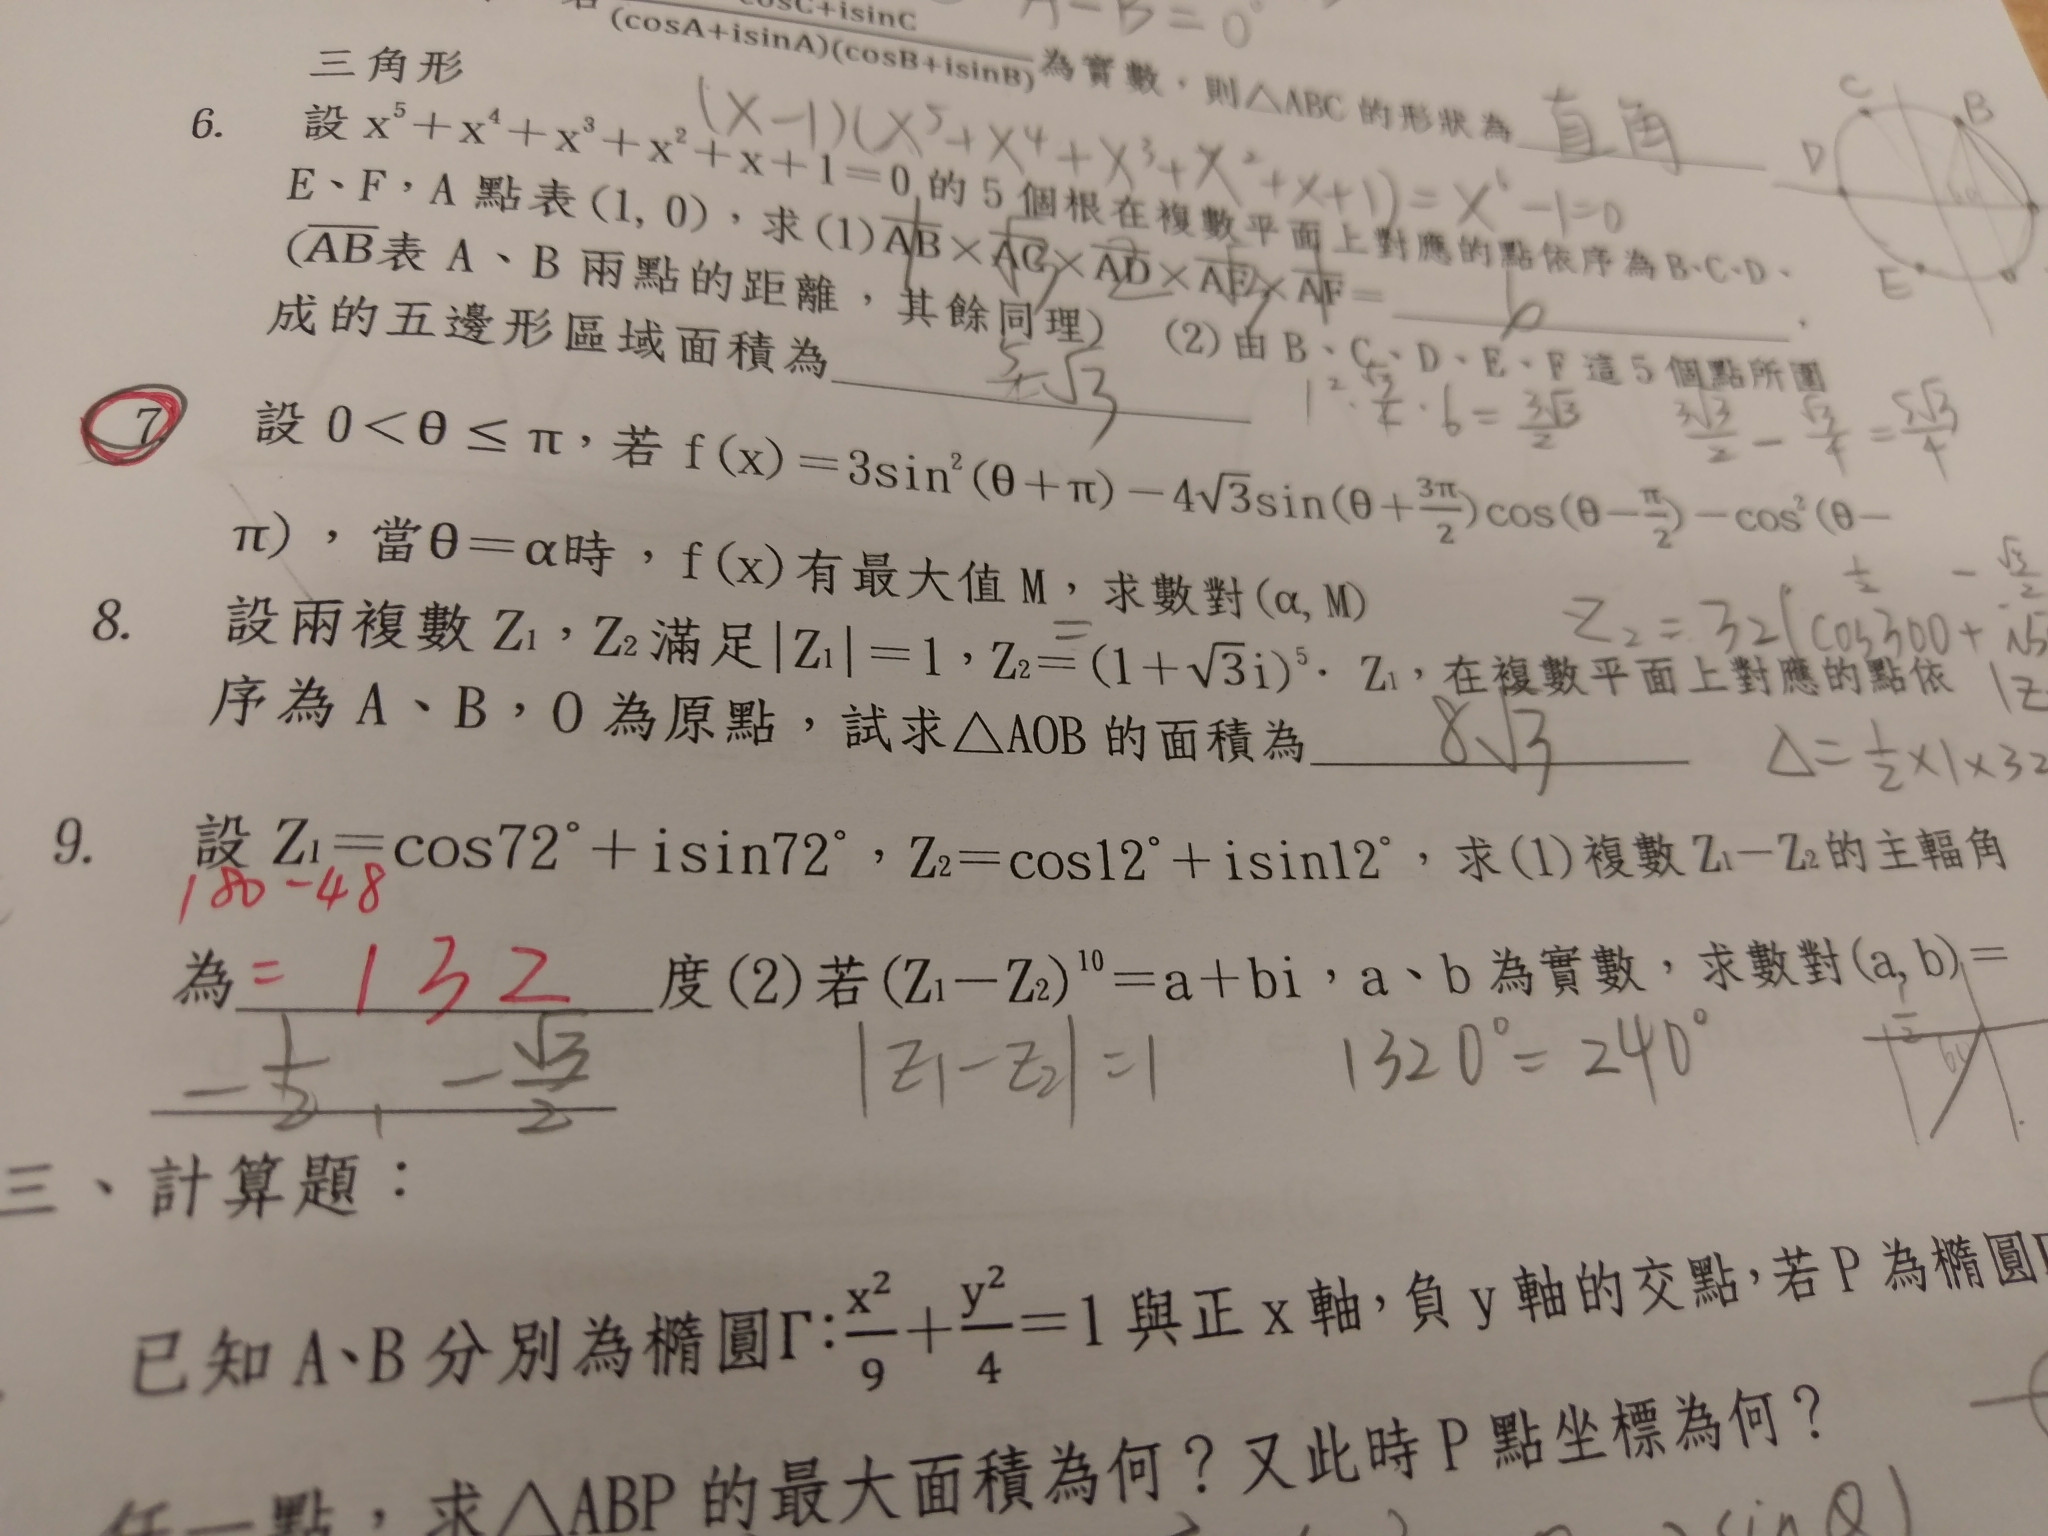 cosC+isinC A-B=0°
(cosA+isinA)(cosB+isinB) 為實數，則△ABC 的形狀為 直角
三角形
(x-1)(x⁵+x⁴+x³+x²+x+1)=x⁶-1=0
6. 設 x⁵+x⁴+x³+x²+x+1=0 的 5 個根在複數平面上對應的點依序為 B、C、D、
E、F，A 點表(1, 0)，求(1)A̅B̅×A̅C̅×A̅D̅×A̅E̅×A̅F̅= 6
(A̅B̅表 A、B 兩點的距離，其餘同理) (2)由 B、C、D、E、F 這 5 個點所圍
成的五邊形區域面積為 5/4√3
1²·√3/4·6=3√3/2 3√3/2-√3/4=5√3/4
C B
D
E
7. 設 0＜θ≤π，若 f(x)=3sin²(θ+π)-4√3sin(θ+3π/2)cos(θ-π/2)-cos²(θ-
π)，當θ=α時，f(x)有最大值 M，求數對(α, M)
1/2 -√3/2
Z₂=32(cos300+
8. 設兩複數 Z₁，Z₂滿足|Z₁|=1，Z₂=(1+√3i)⁵· Z₁，在複數平面上對應的點依
序為 A、B，O 為原點，試求△AOB 的面積為 8√3
△=1/2×1×32
9. 設 Z₁=cos72°+isin72°，Z₂=cos12°+isin12°，求(1)複數Z₁-Z₂的主輻角
180-48
為=132 度(2)若(Z₁-Z₂)¹⁰=a+bi，a、b 為實數，求數對(a, b)=
-1/2, -√3/2 |Z₁-Z₂|=1 1320°=240°
三、計算題：
已知 A、B 分別為橢圓Γ:x²/9+y²/4=1 與正 x 軸，負 y 軸的交點，若 P 為橢圓Γ
任一點，求△ABP 的最大面積為何？又此時 P 點坐標為何？
sinθ)